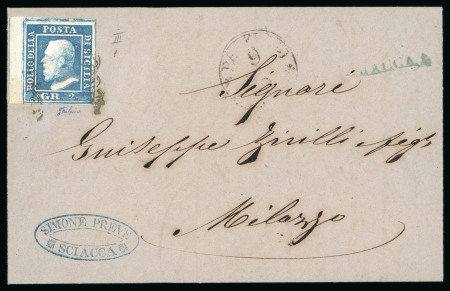 POSTA
BOLLO DELLA
DI SICILIA
GR. 2
III
Signore
Giuseppe Zirilli
Milazzo
SIMONE PREVE
SCIACCA